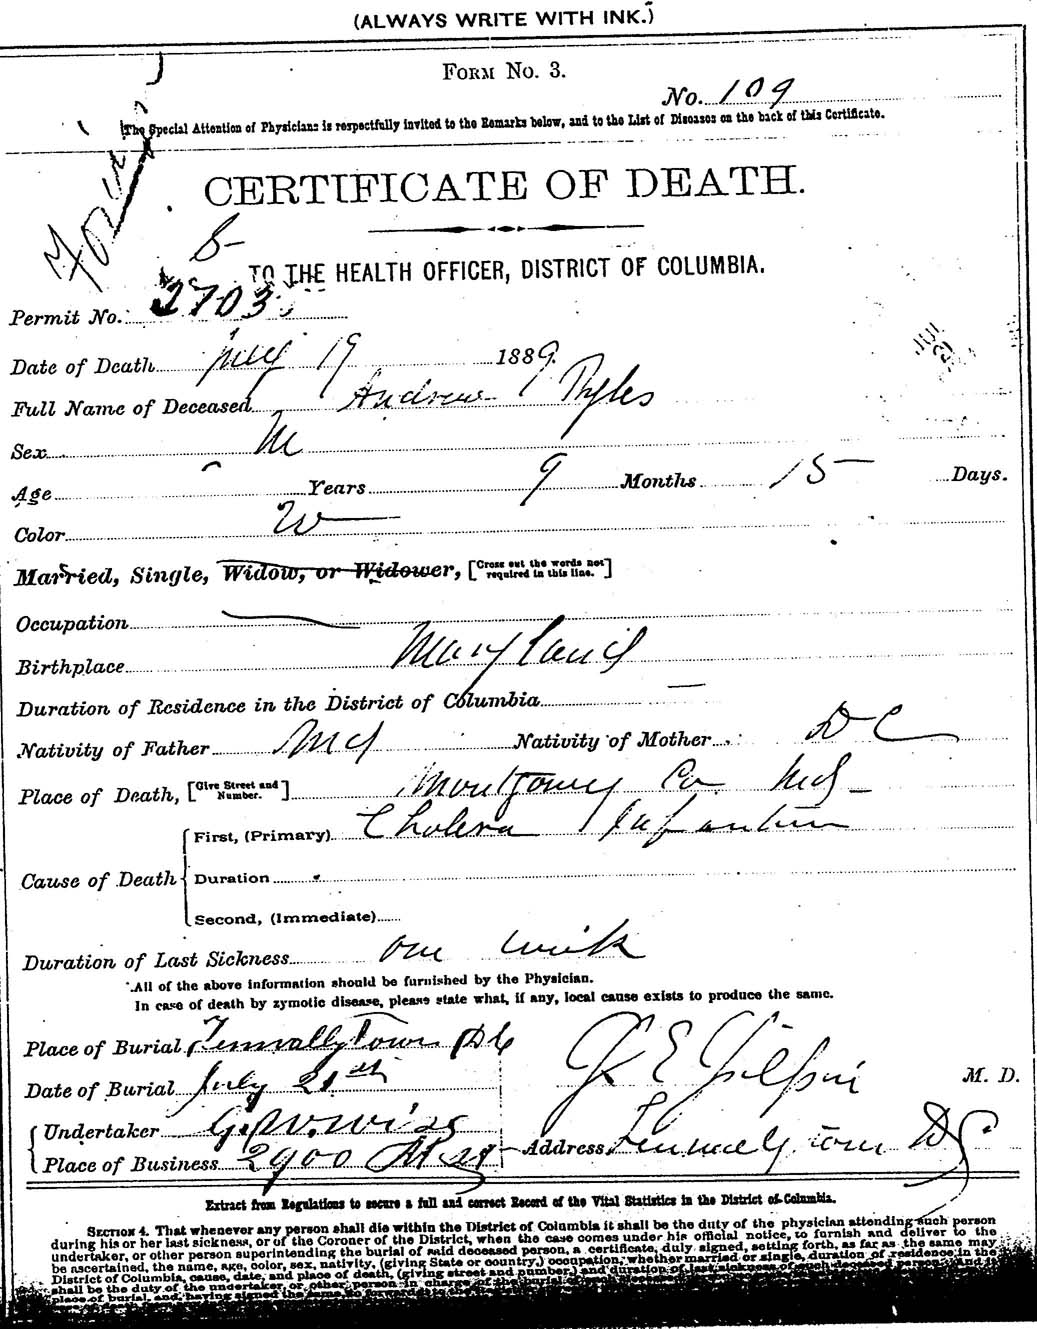 (ALWAYS WRITE WITH INK.)
FORM No. 3.
No. 109
The Special Attention of Physicians is respectfully invited to the Remarks below, and to the List of Diseases on the back of this Certificate.
CERTIFICATE OF DEATH.
TO THE HEALTH OFFICER, DISTRICT OF COLUMBIA.
Permit No. 2703
Date of Death July 19 1889.
Full Name of Deceased Andrew Pyles
Sex M
Age Years 9 Months 15 Days.
Color W
Married, Single, Widow, or Widower, [Cross out the words not required in this line.]
Occupation
Birthplace Maryland
Duration of Residence in the District of Columbia
Nativity of Father Md Nativity of Mother D C
Place of Death, [Give Street and Number.] Montgomery Co. Md
Cause of Death
First, (Primary) Cholera Infantum
Duration
Second, (Immediate)
Duration of Last Sickness one week
All of the above information should be furnished by the Physician.
In case of death by zymotic disease, please state what, if any, local cause exists to produce the same.
Place of Burial Tennallytown DC
Date of Burial July 21st
Undertaker G. W. Wise
Place of Business 2900 M st
M. D.
Address Tennallytown DC
Extract from Regulations to secure a full and correct Record of the Vital Statistics in the District of Columbia.
SECTION 4. That whenever any person shall die within the District of Columbia it shall be the duty of the physician attending such person
during his or her last sickness, or of the Coroner of the District, when the case comes under his official notice, to furnish and deliver to the
undertaker, or other person superintending the burial of said deceased person, a certificate, duly signed, setting forth, as far as the same may
be ascertained, the name, age, color, sex, nativity, (giving State or country,) occupation, whether married or single, duration of residence in the
District of Columbia, cause, date, and place of death, (giving street and number,) and duration of last sickness of such deceased person. And it
shall be the duty of the undertaker, or other person in charge of the burial of
place of burial, and having signed the same, to forward it to the